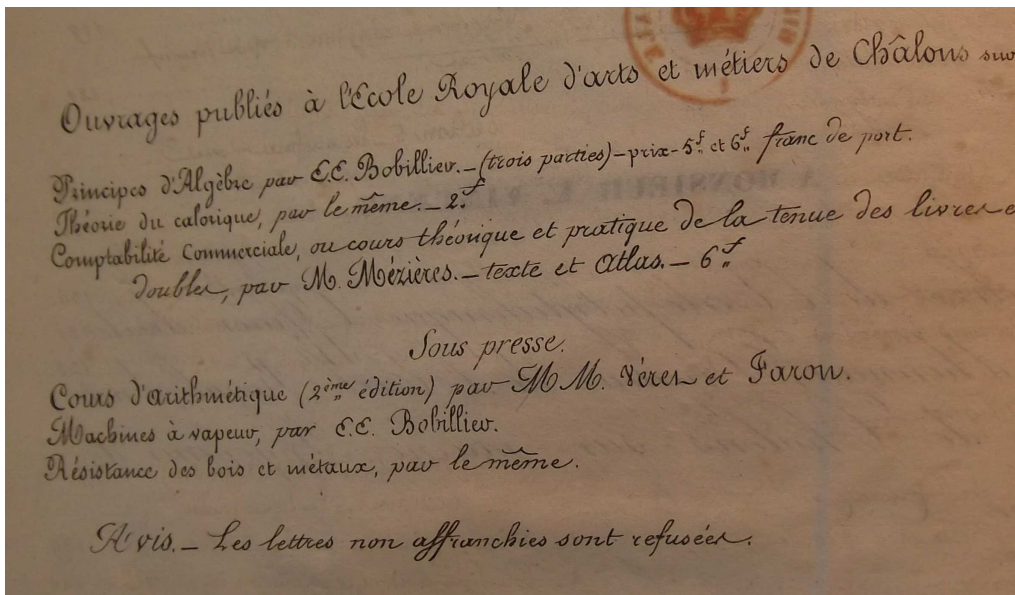 Ouvrages publiés à l'Ecole Royale d'arts et métiers de Châlons sur
Principes d'Algèbre par E.E. Bobillier. – (trois parties) – prix – 5 f. et 6 f. franc de port.
Théorie du calorique, par le même. – 2 f.
Comptabilité Commerciale, ou cours théorique et pratique de la tenue des livres e
doubles, par M. Mézières. – texte et atlas. – 6 f.
Sous presse.
Cours d'arithmétique (2ème édition) par MM. Véres et Faron.
Machines à vapeur, par E.E. Bobillier.
Résistance des bois et métaux, par le même.
Avis. – Les lettres non affranchies sont refusées.